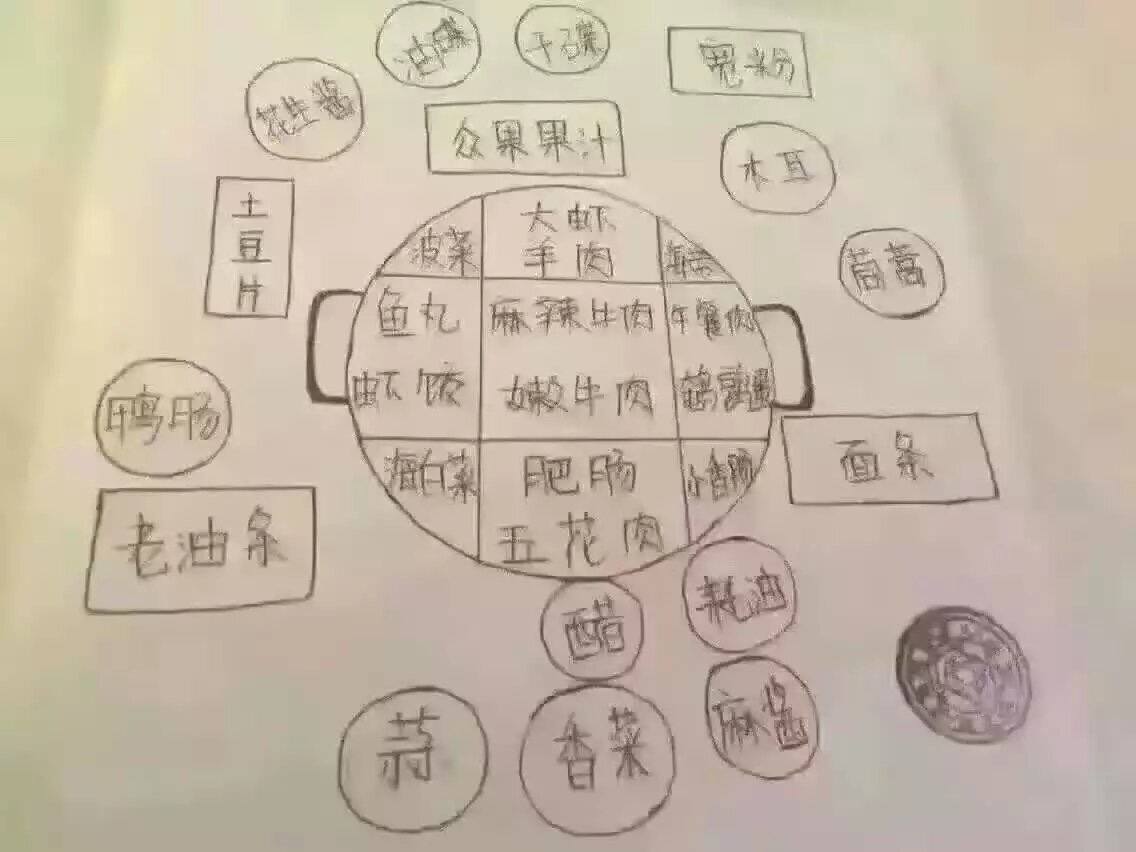 油碟
干碟
宽粉
花生酱
众果果汁
木耳
土豆片
大虾
波菜
羊肉
茼蒿
鱼丸
麻辣牛肉
午餐肉
虾饺
嫩牛肉
鹌鹑蛋
鸭肠
面条
海白菜
肥肠
小香肠
老油条
五花肉
耗油
醋
麻酱
蒜
香菜